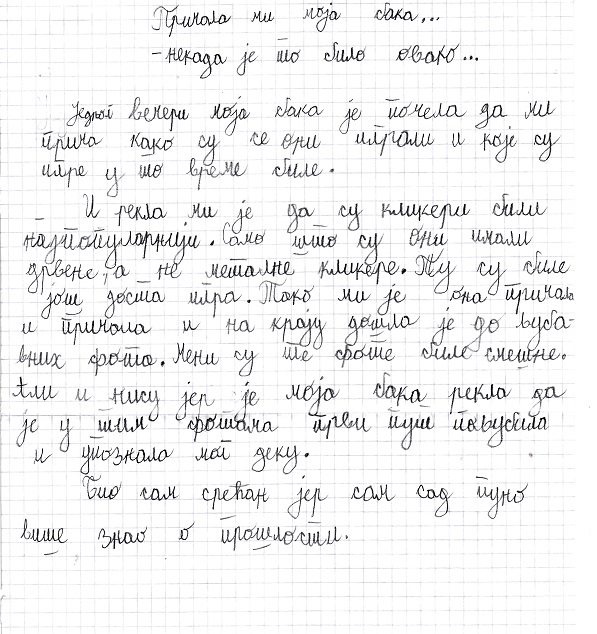 Причала ми моја бака...
-некада је то било овако...
Једног вечери моја бака је почела да ми
прича како су се они играли и које су
игре у то време биле.
И рекла ми је да су кликери били
најпопуларнији. Само што су они имали
дрвене, а не металне кликере. Ту су биле
још доста игра. Тако ми је она причала
и причала и на крају дошла је до љуба-
вних фота. Мени су те фоте биле смешне.
Али и нису јер је моја бака рекла да
је у тим фотама први пут пољубила
и упознала мог деку.
Био сам срећан јер сам сад пуно
више знао о прошлости.